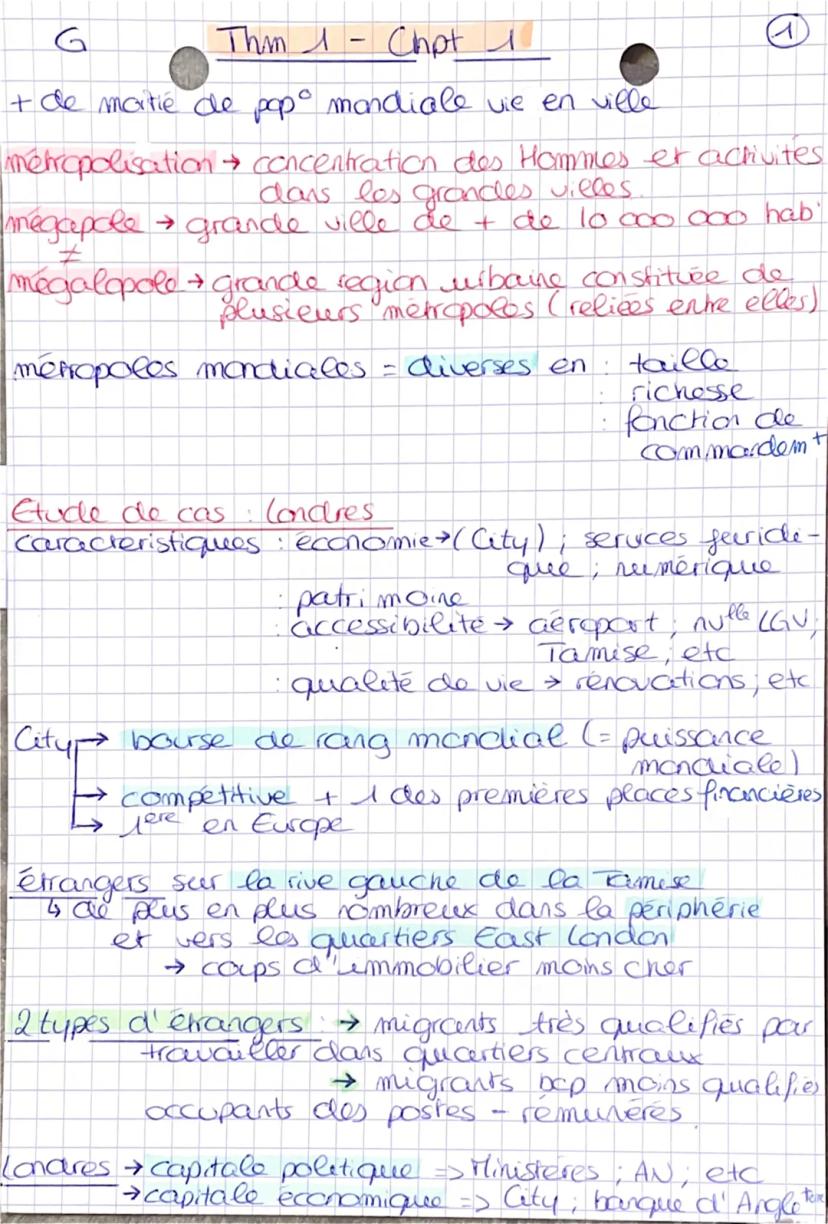 G Thm 1 - Chpt 1 1
+ de moitié de pop° mondiale vie en ville
métropolisation → concentration des Hommes et activités
dans les grandes villes
mégapole → grande ville de + de 10 000 000 hab
≠
mégalopole → grande region urbaine constituée de
plusieurs métropoles (reliées entre elles)
métropoles mondiales = diverses en : taille
: richesse
: fonction de
commandem+
Etude de cas : Londres
caractéristiques : économie → (City) ; services juridi-
que ; numérique
: patrimoine
: accessibilité → aéroport ; nvelle LGV ;
Tamise ; etc
: qualité de vie → rénovations ; etc
City → bourse de rang mondial (= puissance
mondiale)
→ compétitive + 1 des premières places financières
→ 1ère en Europe
étrangers sur la rive gauche de la Tamise
↳ de plus en plus nombreux dans la périphérie
et vers les quartiers East London
→ coups d'immobilier moins cher
2 types d'étrangers : → migrants très qualifiés par
travailler dans quartiers centraux
→ migrants bcp moins qualifiés
occupants des postes - rémunérés
Londres → capitale politique => Ministères ; AN ; etc
→ capitale économique => City ; banque d'Angleterre